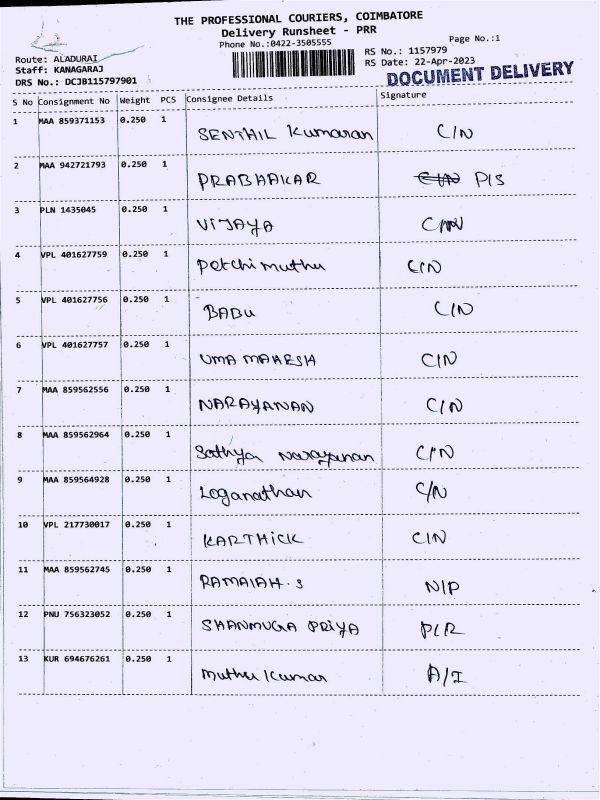 THE PROFESSIONAL COURIERS, COIMBATORE
Delivery Runsheet - PRR
Phone No.:0422-3505555
Page No.:1
Route: ALADURAI
RS No.: 1157979
Staff: KANAGARAJ
RS Date: 22-Apr-2023
DRS No.: DCJB115797901
DOCUMENT DELIVERY
S No Consignment No Weight PCS Consignee Details Signature
1 MAA 859371153 0.250 1 SENTHIL Kumaran C/N
2 MAA 942721793 0.250 1 PRABHAKAR P/S
3 PLN 1435045 0.250 1 VIJAYA C/N
4 VPL 401627759 0.250 1 Petchimuthu C/N
5 VPL 401627756 0.250 1 BABU C/N
6 VPL 401627757 0.250 1 UMA MAHESH C/N
7 MAA 859562556 0.250 1 NARAYANAN C/N
8 MAA 859562964 0.250 1 Sathya Narayanan C/N
9 MAA 859564928 0.250 1 Loganathan C/N
10 VPL 217730017 0.250 1 KARTHICK C/N
11 MAA 859562745 0.250 1 RAMAIAH.S N/P
12 PNU 756323052 0.250 1 SHANMUGA PRIYA P/R
13 KUR 694676261 0.250 1 Muthu Kumar A/I